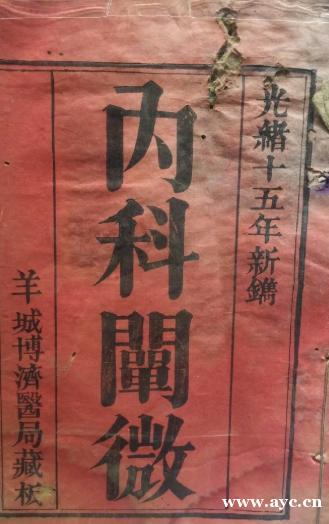 光緒十五年新鐫
內科闡微
羊城博濟醫局藏板
www.ayc.cn